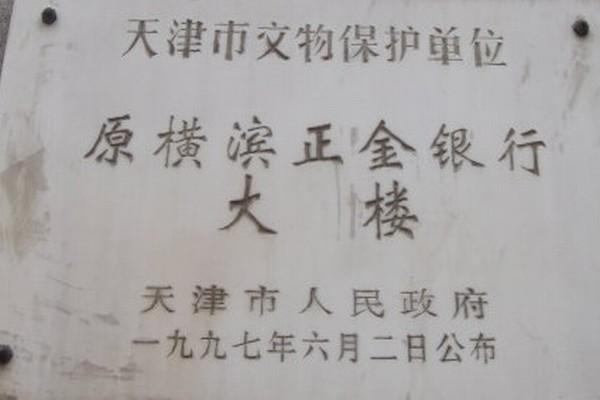 天津市文物保护单位
原横滨正金银行
大楼
天津市人民政府
一九九七年六月二日公布